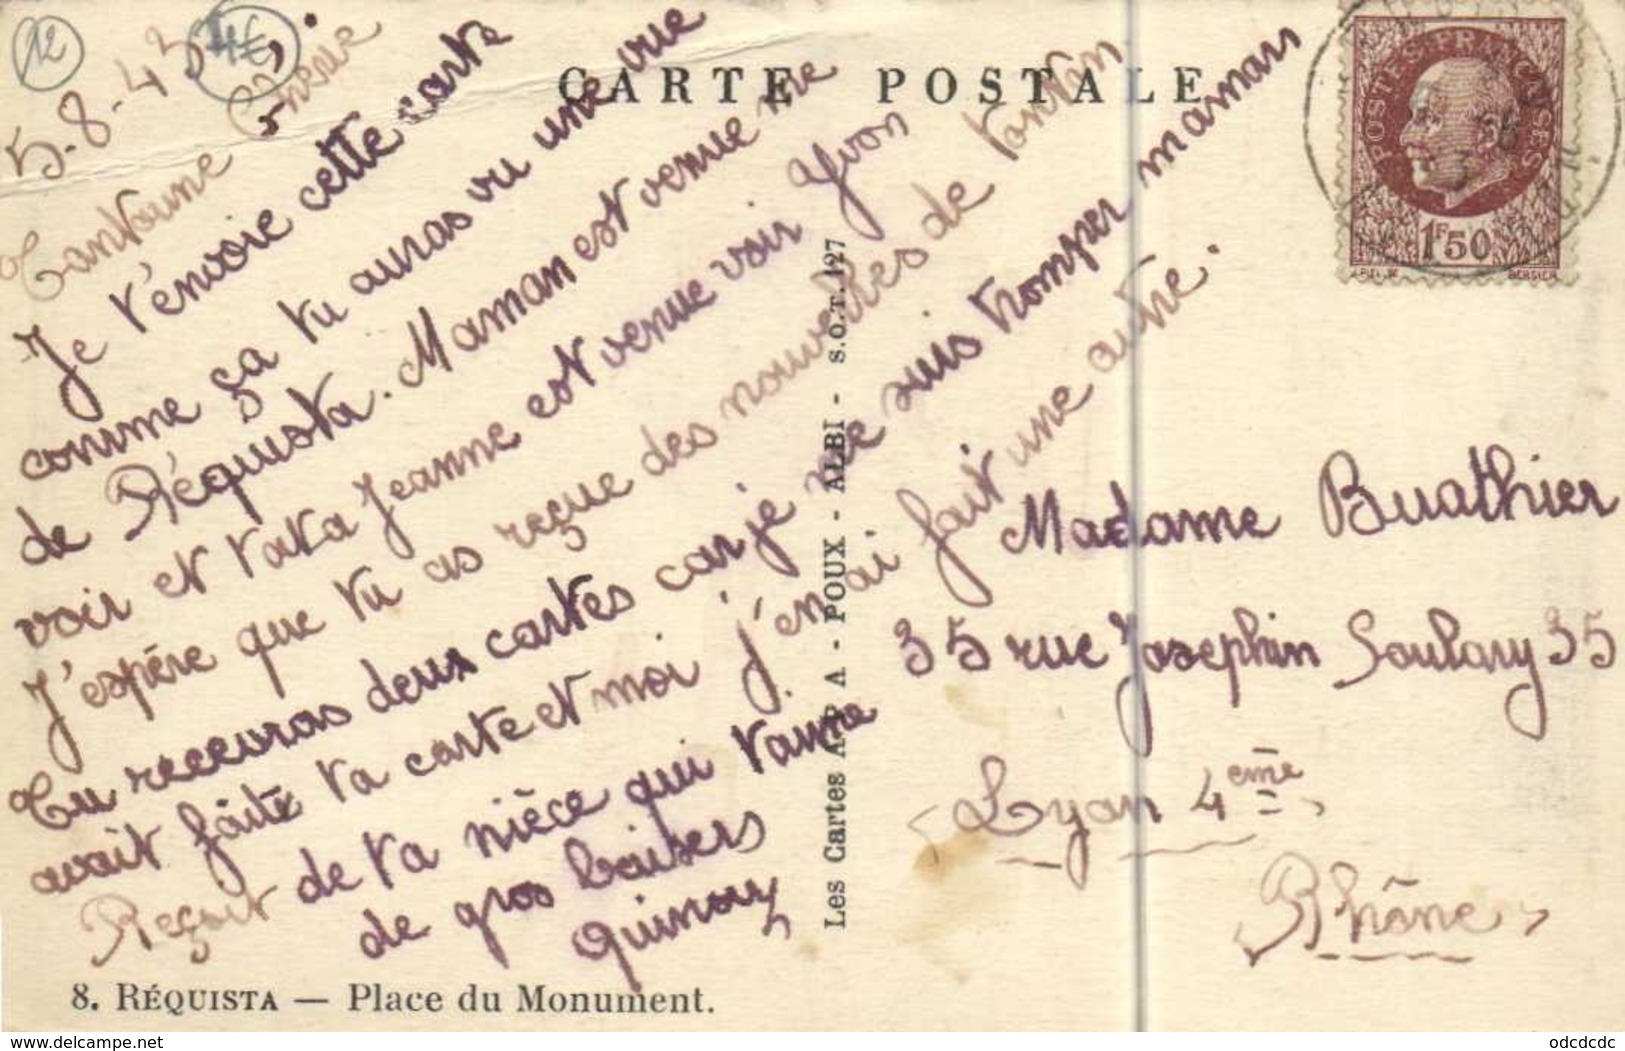 12
4€
CARTE POSTALE
POSTES FRANÇAISES
1F50
BERSIER
5-8-43
Tantoune Chérie
Je t'envoie cette carte
comme ça tu auras vu une vue
de Réquista. Maman est venue me
voir et tata Jeanne est venue voir Yvon
J'espére que tu as reçue des nouvelles de tonton
Tu recevras deux cartes car je me suis tromper maman
avait faite ta carte et moi j'en ai fait une autre.
Reçoit de ta nièce qui t'aime
de gros baisers
Les Cartes A - POUX - ALBI - S.O.T. 127
Madame Buathier
35 rue Josephin Soulary 35
Lyon 4eme
Rhône
8. RÉQUISTA — Place du Monument.
www.delcampe.net
odcdcdc